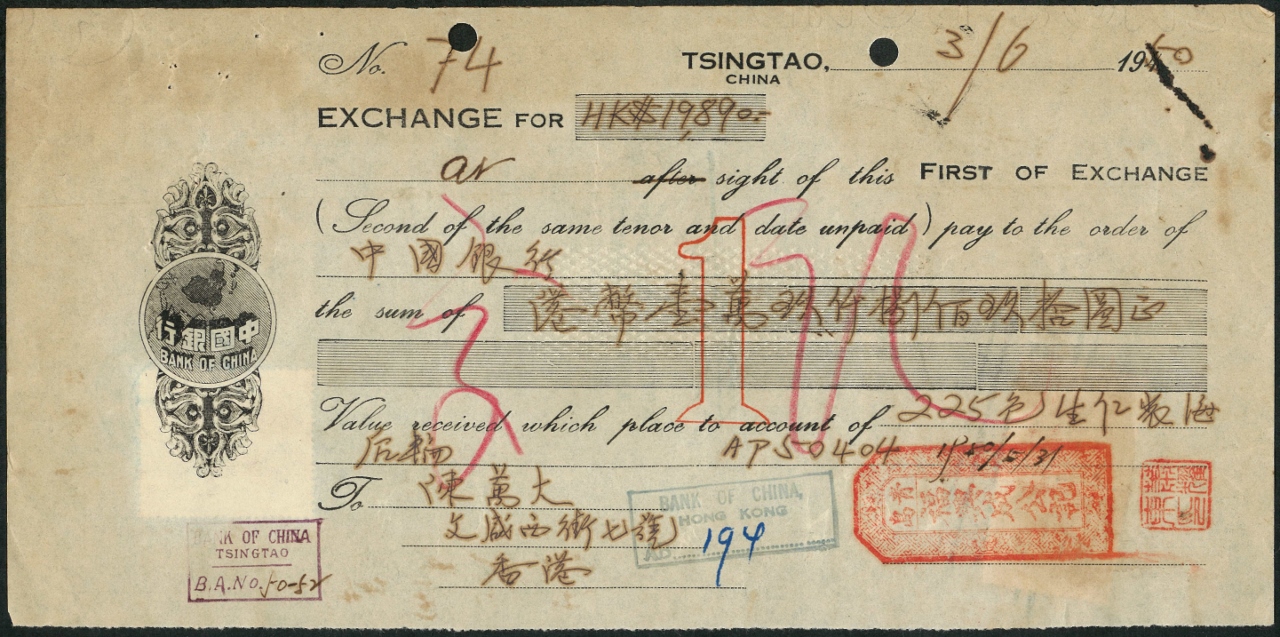 No. 74 TSINGTAO, 3/6 1950
CHINA
EXCHANGE FOR HK$19890.-
at after sight of this FIRST OF EXCHANGE
(Second of the same tenor and date unpaid) pay to the order of
中國銀行
the sum of 港幣壹萬玖仟捌佰玖拾圓正
1
中國銀行
BANK OF CHINA
Value received which place to account of 225包生仁裝海
后輪
AP50404 1950/5/31
To 陳萬大
文咸西街七號
香港
BANK OF CHINA,
HONG KONG
194
BANK OF CHINA
TSINGTAO
B.A.No. 50-52